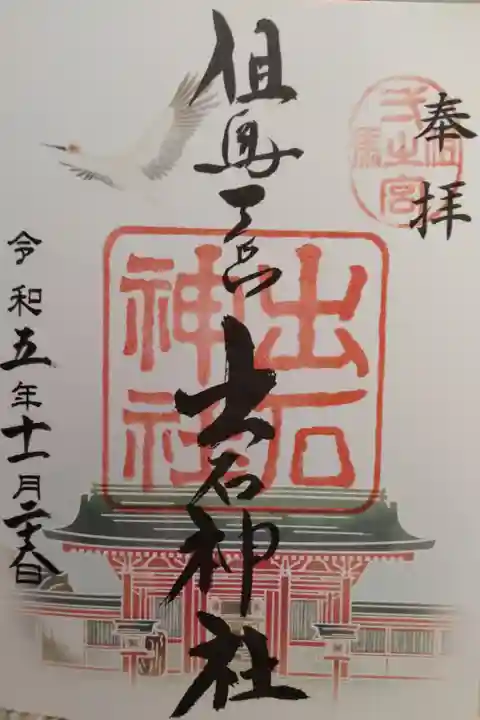 奉拝
但馬一宮 出石神社
令和五年十一月二十六日
但馬
弌之宮
出石
神社